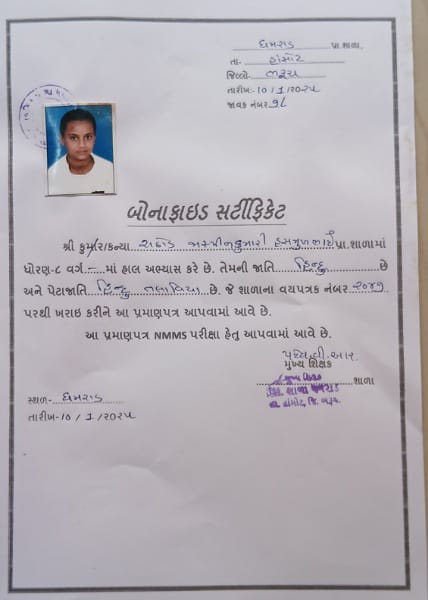 ધમરાડ પ્રા.શાળા,
તા- હાંસોટ
જિલ્લો- ભરૂચ
તારીખ-૧૦/૧/૨૦૨૫
જાવક નંબર-૧૮
બોનાફાઇડ સર્ટીફિકેટ
શ્રી કુમાર/કન્યા રાઠોડ જસ્મીનકુમારી હસમુખભાઈ પ્રા.શાળામાં
ધોરણ-૮ વર્ગ.– માં હાલ અભ્યાસ કરે છે. તેમની જાતિ હિન્દુ છે
અને પેટાજાતિ હિન્દુ તલાવિયા છે. જે શાળાના વયપત્રક નંબર ૨૦૪૭
પરથી ખરાઇ કરીને આ પ્રમાણપત્ર આપવામાં આવે છે.
આ પ્રમાણપત્ર NMMS પરીક્ષા હેતુ આપવામાં આવે છે.
મુખ્ય શિક્ષક
શાળા
સ્થળ- ધમરાડ
તારીખ-૧૦/૧/૨૦૨૫
તા. હાંસોટ, જિ. ભરૂચ.